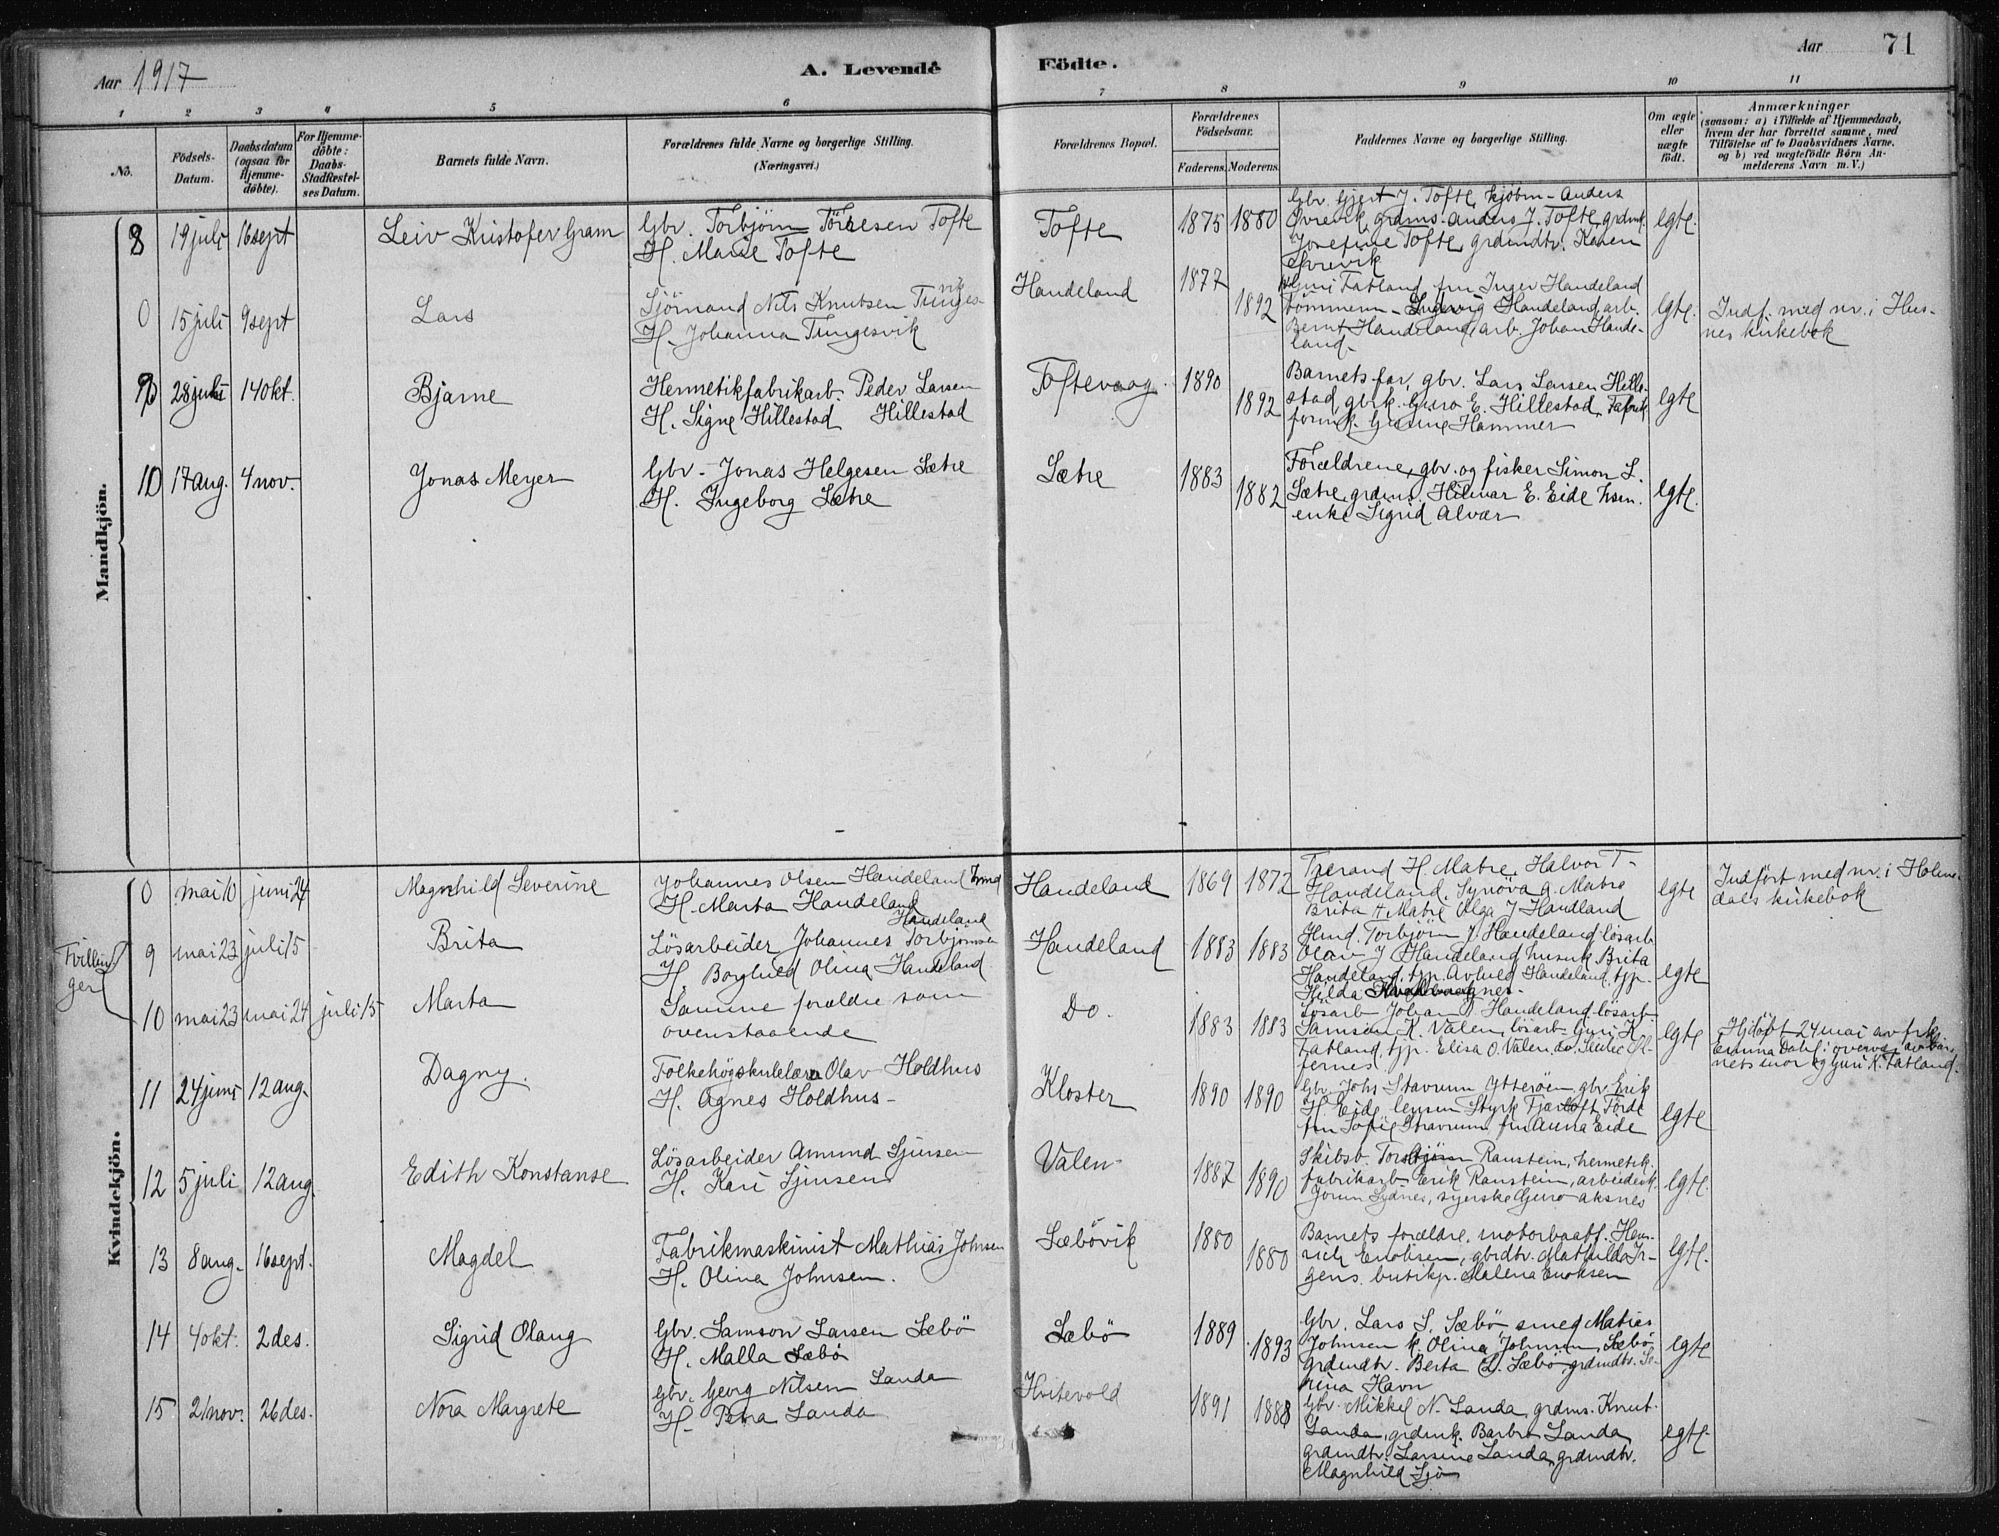 Aar 1917
A. Levende Födte.
Aar 71
1 2 3 4 5 6 7 8 9 10 11
No.
Födsels-Datum.
Daabsdatum (ogsaa for Hjemme-döbte).
For Hjemme-döbte: Daabs-Stadfestel-ses Datum.
Barnets fulde Navn.
Forældrenes fulde Navne og borgerlige Stilling.
(Næringsvei.)
Forældrenes Bopæl.
Forældrenes Födselsaar.
Faderens. Moderens.
Faddernes Navne og borgerlige Stilling.
Om ægte eller uægte födt.
Anmærkninger
(saasom: a) i Tilfælde af Hjemmedaab, hvem der har forrettet samme, med Tilföielse af to Daabsvidners Navne, og b) ved uægtefödte Börn Anmelderens Navn m. V.)
Mandkjön.
8 19 juli 16 sept Leiv Kristofer Gram
Gbr. Torbjörn Törresen Tofte
H. Marie Tofte
Tofte 1875 1880
Gbr. Gjert J. Tofte, kjöbm. Anders
Svrevik, grdms. Anders J. Tofte, grdmk.
Josefine Tofte, grdmdtr. Karen
Svrevik
egte.
0 15 juli 9 sept Lars
Sjömand Nils Knutsen Tungesvik
H. Johanna Tungesvik
Handeland 1877 1892
Guri Fatland, fru Inger Handeland
Tömmerm. Ingevig Handeland, arb.
Bernt Handeland, arb. Johan Hande-
land.
egte. Indf. med nr. i Hus-
nes kirkebok
9 28 juli 14 okt. Bjarne
Hermetikfabrikarb. Peder Larsen
H. Signe Hillestad Hillestad
Toftevaag. 1890 1892
Barnets far, gbr. Lars Larsen Hille-
stad, gbrk. Guro E. Hillestad, Fabrik
formk. Gurine Hammer
egte
10 17 aug. 4 nov. Jonas Meyer
Gbr. Jonas Helgesen Sætre
H. Ingeborg Sætre
Sætre 1883 1882
Forældrene, gbr. og fisker Simon S.
Sætre, grdms. Hilmar E. Eide husm.
enke Sigrid Alvær
egte.
Kvindekjön.
0 mai 10 juni 24 Magnhild Severine
Johannes Olsen Handeland
H. Marta Handeland
Handeland 1869 1872
Tperand H. Matre, Halvor T.
Handeland, Synöva A. Matre
Brita H Matre Olga J Handland
egte Indfört med nr. i Holme-
dals kirkebok
Tvillin-
ger
9 mai 23 juli 15 Brita
Handeland
Lösarbeider Johannes Torbjörnsen
H. Borghild Olina Handeland
Handeland 1883 1883
Hmd. Torbjörn J. Handeland lösarb.
Olav J Handeland husmk. Brita
Handeland, tjp. Avhild Handeland, tjp.
Hilda
egte
10 mai 23 mai 24 juli 15 Marta
Samme forældre som
ovenstaaende
Do. 1883 1883
Lösarb Johan J. Handeland lösarb.
Samson K. Valen, lösarb. Guri K.
Fatland, tjp. Elisa O. Valen, do
egte Hjdöpt 24 mai av frk
Emma Dahl i overvær av bar-
nets mor og Guri K. Fatland.
11 24 juni 12 aug. Dagny.
Folkehögskulelærer Olav Holdhus
H. Agnes Holdhus
Kloster 1890 1890
Gbr. Johs Stavrum Ytteröen, gbr. Erik
H Eide, lensm Styrk Fjærtoft, Förde
fru Sofie Stavrum, fru Anna Eide
egte
12 5 juli 12 aug. Edith Konstanse
Lösarbeider Amund Sjursen
H. Kari Sjursen
Valen 1887 1890
Skibsb. Torbjörn Ranstein, hermetik-
fabrikarb. Erik Ranstein, arbeidersk.
Jorun Sydnes, syerske Guro Aksnes
egte.
13 8 aug. 16 sept. Magdel
Fabrikmaskinist Mathias Johnsen
H. Olina Johnsen.
Sæbövik 1880 1880
Barnets forældre, motorbaatf. Hen-
rich Enoksen, gbrdtr. Mathilda Jr-
gens, butikp. Malena Enoksen
egte.
14 4 okt. 2 des. Sigrid Olaug
Gbr. Samson Larsen Sæbö
H. Malla Sæbö
Sæbö 1889 1893
Gbr. Lars S. Sæbö smed Matias
Johnsen k. Olina Johnsen, Sæbö,
grdmdtr. Berta L. Sæbö grdmdtr. Se-
rina Havn
egte
15 21 nov. 26 des. Nora Margrete
Gbr. Georg Nilsen Sanda
H. Petra Sanda
Hvitevold 1891 1888
Gbr. Mikkel N. Sanda, grdms. Knut
Sanda, grdmk. Barbro Sanda,
grdmdtr. Larsine Sanda, grdmdtr.
Magnhild Sjo
egte.